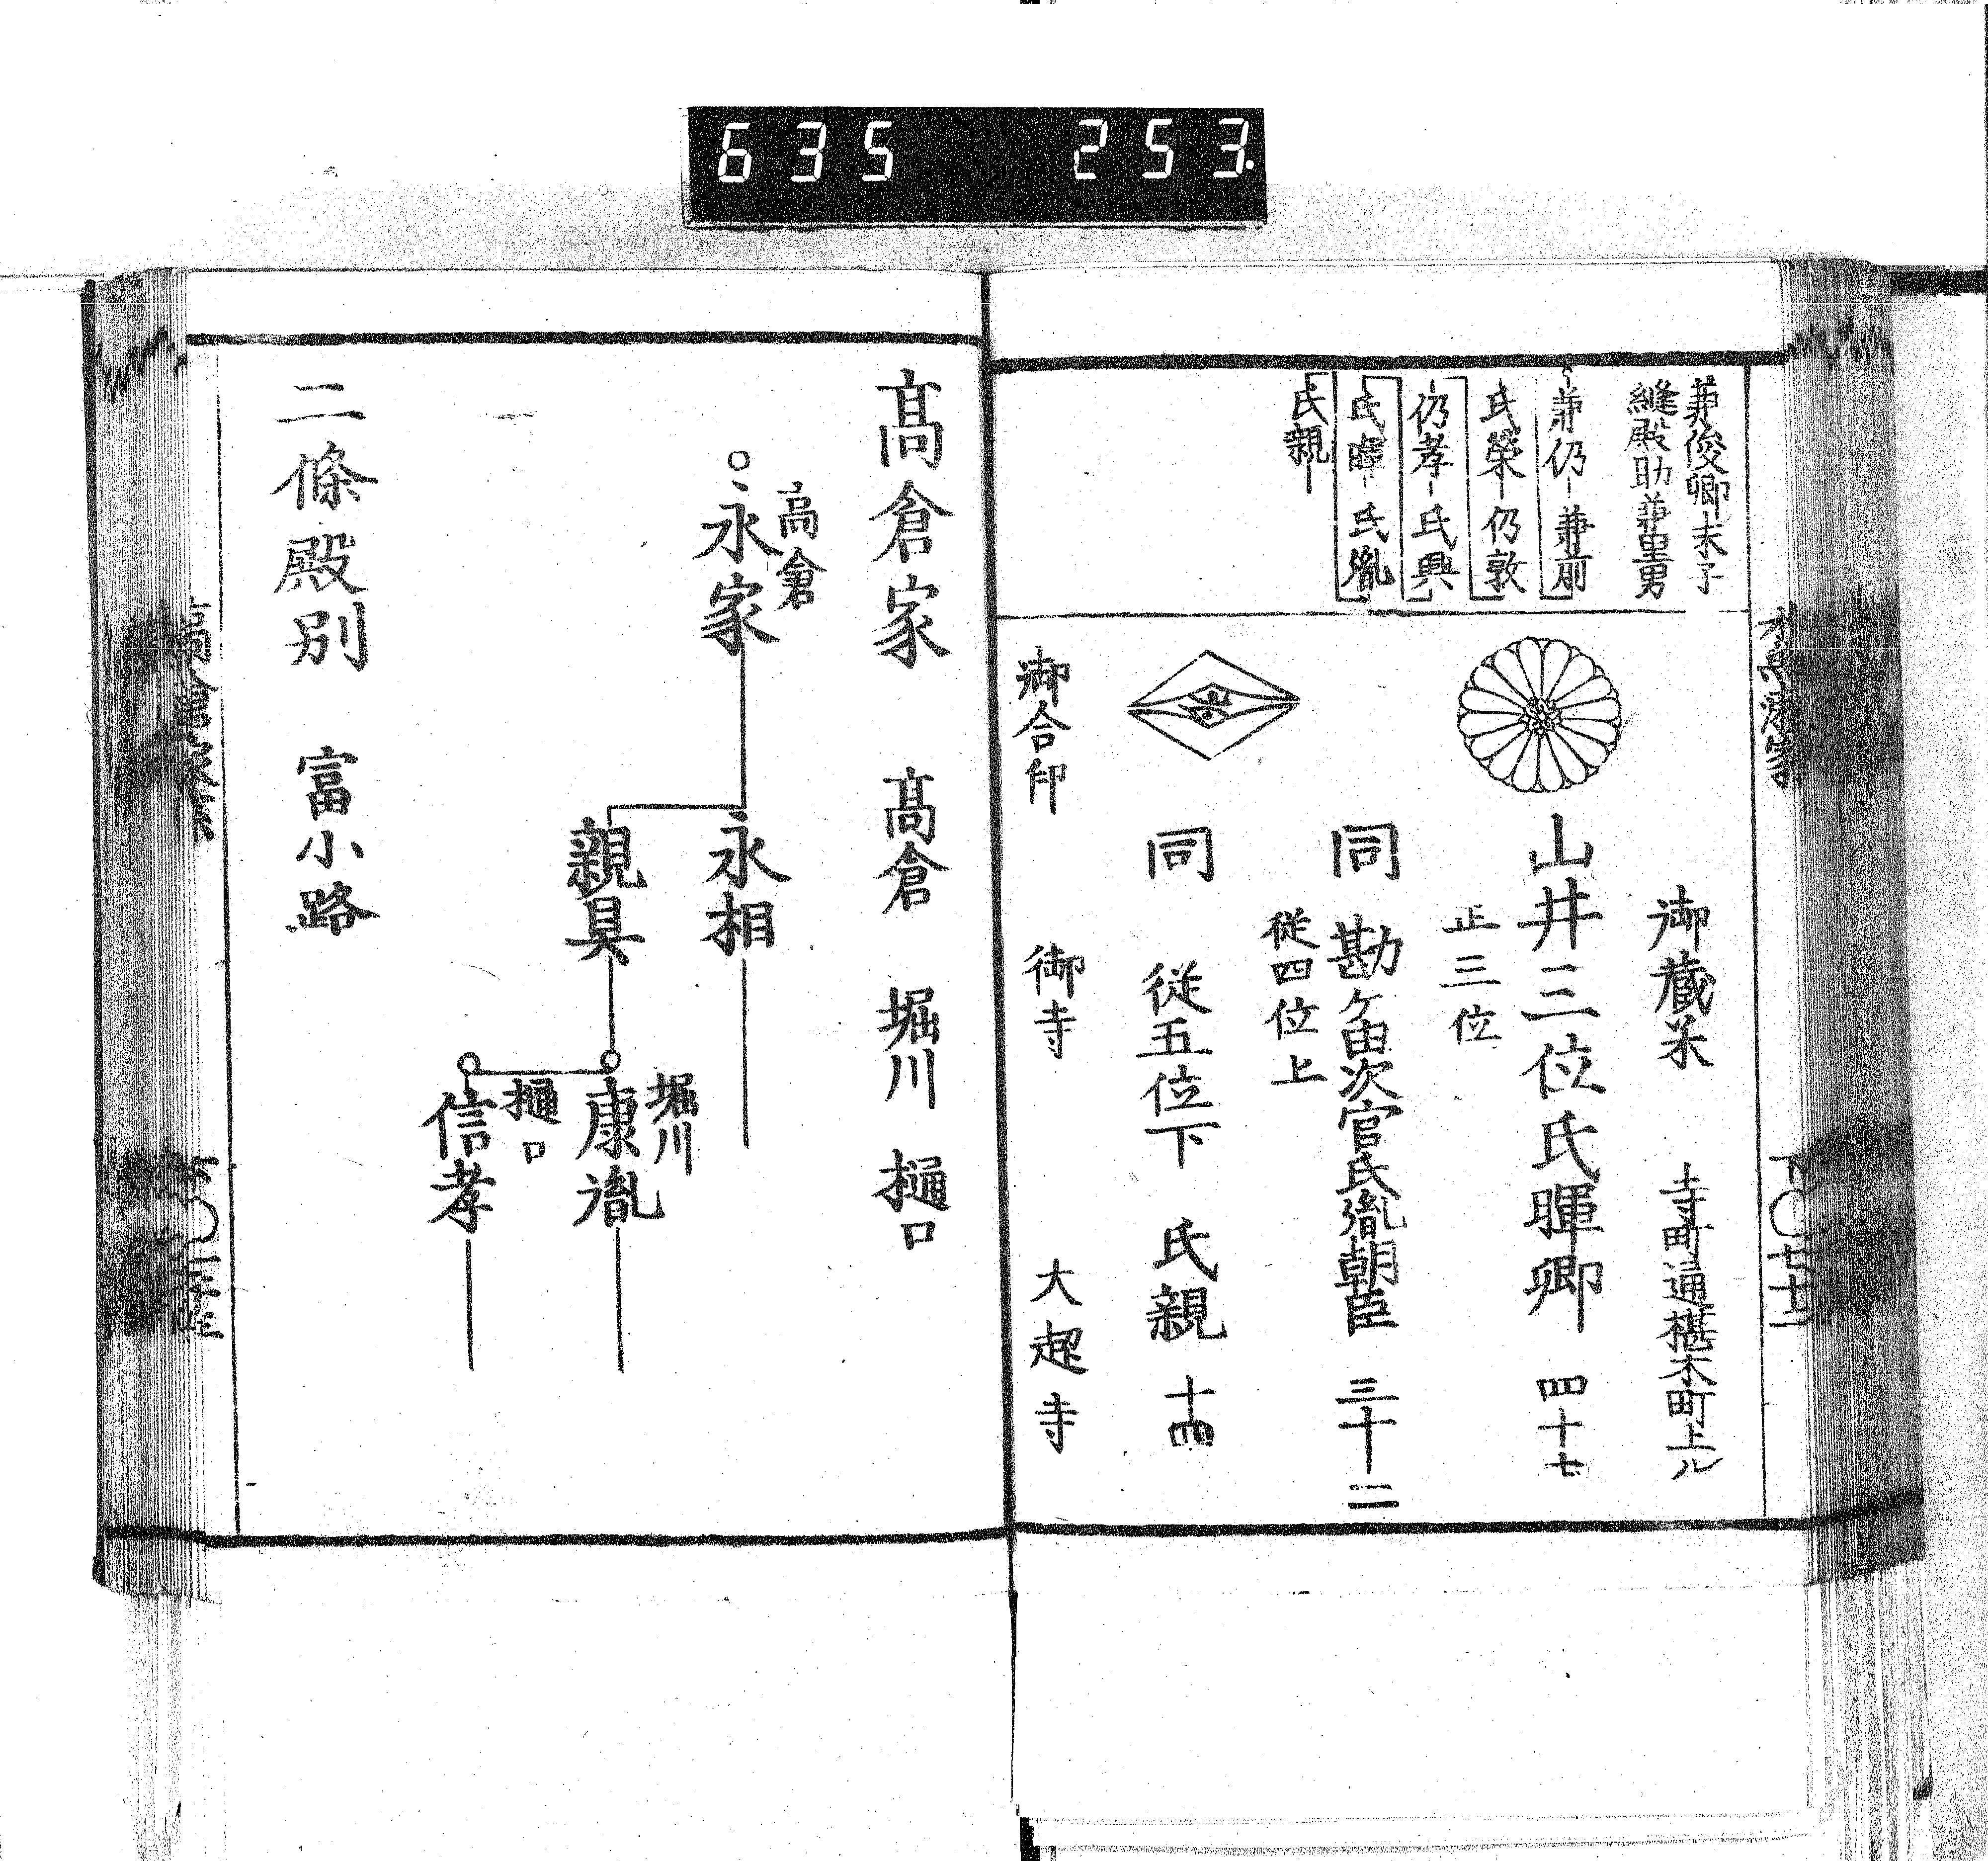 635 253.
兼俊卿末子
縫殿助兼里男
兼仍 兼前
氏榮 仍敦
仍孝 氏興
氏暉 氏胤
氏親
御蔵米 寺町通椹木町上ル
山井三位氏暉卿 四十七
正三位
同 勘ケ由次官氏胤朝臣 三十二
従四位上
同 従五位下 氏親 十四
御合印 御寺 大超寺
高倉家 高倉 堀川 樋口
高倉
永家
永相
親具
堀川
康胤
樋口
信孝
二條殿別 富小路